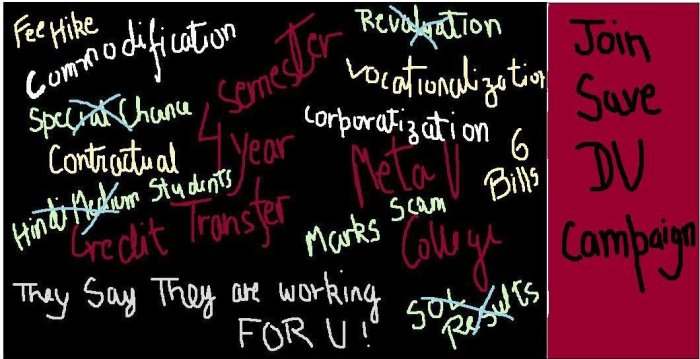 Fee Hike
Commodification
Special Chance
Contractual
Hindi Medium Students
semester
4 year
Credit Transfer
Revaluation
Vocationalization
Corporatization
Meta U
College
6
Bills
Marks Scam
SOL
Results
They Say They are working
FOR U!
Join
Save
DU
Campaign